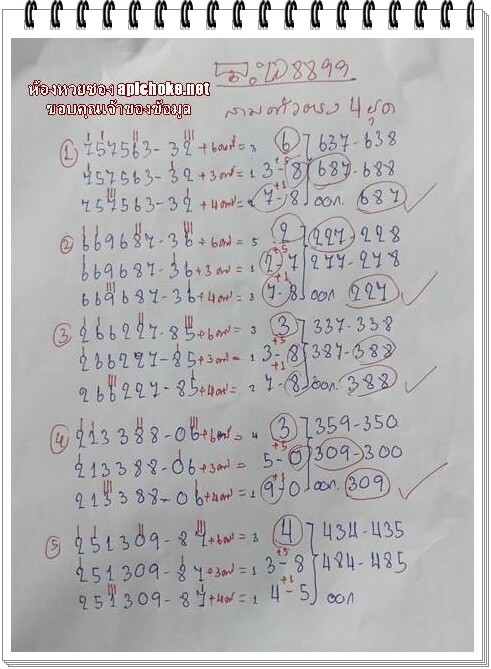 ห้องหวยซอง apichoke.net
ขอบคุณเจ้าของข้อมูล
8899
สามตัวตรง 4 ชุด
1 757563-32+6 = 3 6 637-638
757563-32+3 = 1 3-8 687-688
757563-32+4 = 7-8 ออก. 687
2 669687-36+6 = 5 2 227-228
669687-36+3 = 1 2-7 277-278
669687-36+4 = 3 7-8 ออก 227
3 266227-85+6 = 3 3 337-338
266227-85+3 = 1 3-8 387-388
266227-85+4 = 2 7-8 ออก. 388
4 213388-06+6 = 4 3 359-350
213388-06+3 = 5-0 309-300
213388-06+4 = 1 9-0 ออก. 309
5 251309-87+6 = 3 4 434-435
251309-87+3 = 1 3-8 484-485
251309-87+4 = 2 4-5 ออก